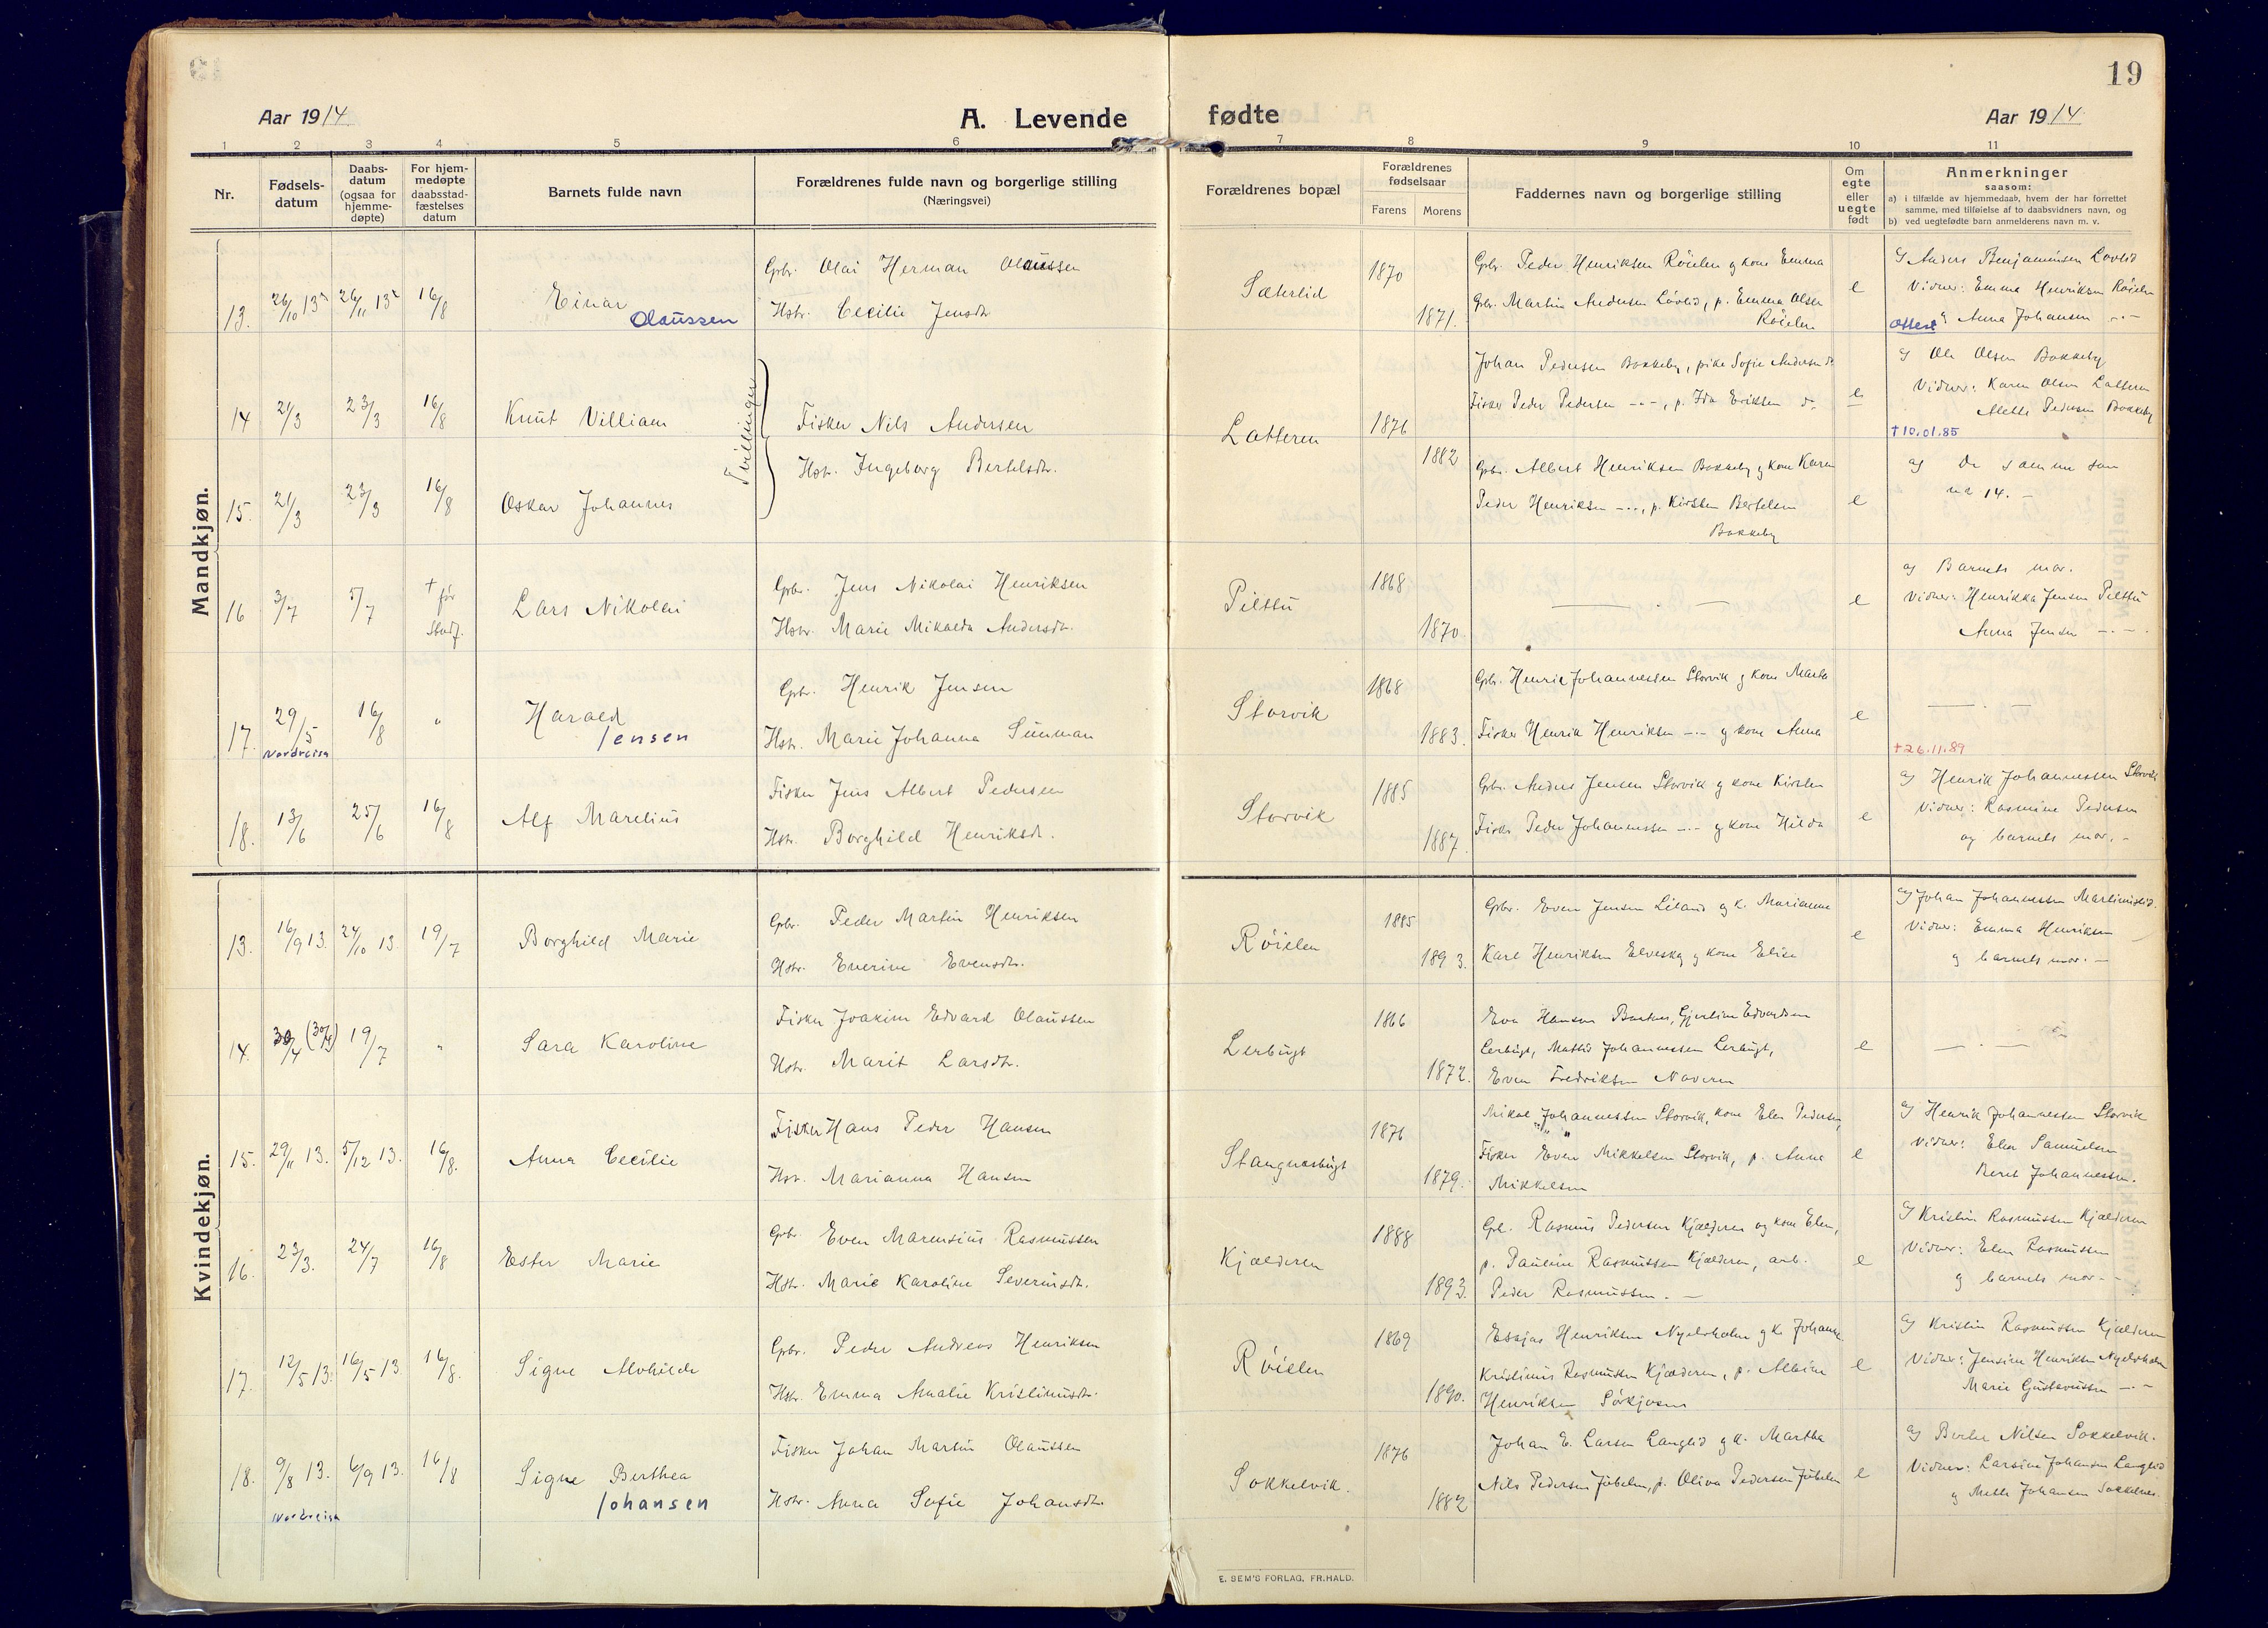 19
Aar 1914
A. Levende
fødte
Aar 1914
1 2 3 4 5 6 7 8 9 10 11
Nr.
Fødsels-
datum
Daabs-
datum
(ogsaa for
hjemme-
døpte)
For hjem-
medøpte
daabsstad-
fæstelses
datum
Barnets fulde navn
Forældrenes fulde navn og borgerlige stilling
(Næringsvei)
Forældrenes bopæl
Forældrenes
fødselsaar
Farens
Morens
Faddernes navn og borgerlige stilling
Om
egte
eller
uegte
født
Anmerkninger
saasom:
a) i tilfælde av hjemmedaab, hvem der har forrettet
samme, med tilføielse af to daabsvidners navn, og
b) ved uegtefødte barn anmelderens navn m. v.
Mandkjøn.
13. 26/10 13 26/11 13 16/8
Einar
Olaussen
Gpbr. Olai Herman Olaussen
Hstr. Cecilie Jensdtr.
Sæterlid
1870
1871.
Gpbr. Peder Henriksen Röielen g kone Emma
Gpbr. Martin Andersen Lövlid, p. Emma Olsen
Röielen
e
Anders Benjaminsen Lovlid
Vidner: Emma Henriksen Röielen
attest Anna Johansen -"-
14 21/3 23/3 16/8
Knut Villiam
Tvillinger
Fisker Nils Andersen
Hstr. Ingeborg Bertelsdtr.
Latteren
1876
1882
Johan Pedersen Bakkeby, pike Sofie Andersen do
Fisker Peder Pedersen -"-, p. Ida Eriksen do
e
af Ole Olsen Bakkeby
Vidner: Karen Olsen Latteren
Alette Pedersen Bakkeby
†10.01.85
15. 21/3 23/3 16/8
Oskar Johannes
Gpbr. Albert Henriksen Bakkeby g kone Karen
Peder Henriksen -"-, p. Kirsten Bertelsen
Bakkeby
e
af de samme som
ved 14. -
16 3/7 5/7 † før Stadf.
Lars Nikolai
Gpbr. Jens Nikolai Henriksen
Hstr. Marie Mikalda Andersdtr.
Pilttu
1868
1870.
e
af Barnets mor.
Vidner: Henrikka Jensen Pilttu
Anna Jensen -"-
17. 29/5 16/8 "
Nordreisa
Harald
Jensen
Gpbr. Henrik Jensen
Hstr. Marie Johanna Sunman
Storvik
1868
1883.
Gpbr. Henrik Johannessen Storvik g kone Marta
Fisker Henrik Henriksen -"- g kone Anna
e
†26.11.89
18. 13/6 25/6 16/8
Alf Marelius
Fisker Jens Albert Pedersen
Hstr. Borghild Henriksdtr.
Storvik
1885
1887.
Gpbr. Anders Jensen Storvik g kone Kirsten
Fisker Peder Johannessen -"- g kone Hilda
e
af Henrik Johannessen Storvik
Vidner: Rasmine Pedersen
og barnets mor. -
Kvindekjøn.
13. 16/9 13. 24/10 13 19/7
Borghild Marie
Gpbr. Peder Martin Henriksen
Hstr. Everine Evensdtr.
Röielen
1885
1893.
Gpbr. Even Jensen Leland og k. Marianne
Karl Henriksen Elveskog g kone Elise
e
af Johan Johannessen
Vidner: Emma Henriksen
g barnets mor. -
14. 30/4 19/7 "
Sara Karoline
Fisker Joakim Edvard Olaussen
Hstr. Marit Larsdtr.
Lerbugt
1866
1872.
Eva Hansen, Gjertine Edvardsen
Lerbugt, Mathis Johannessen Lerbugt,
Even Fredriksen Naveren
e
15. 29/11 13. 5/12 13. 16/8.
Anna Cecilie
Fisker Hans Peder Hansen
Hstr. Marianna Hansen
Stangnesbugt
1876
1879.
Mikal Johannessen Storvik, kone Elen Pedersen,
Fisker Even Mikkelsen Storvik, p. Anna
Mikkelsen
e
af Henrik Johannessen Storvik
Vidner: Elen Samuelsen
Beret Johannessen.
16. 23/3. 24/7 16/8
Ester Marie
Gpbr. Even Marensius Rasmussen
Hstr. Marie Karoline Severinsdtr.
Kjælderen
1888
1893.
Gpb. Rasmus Pedersen Kjælderen og kone Elen,
p. Pauline Rasmussen Kjælderen, arb.
Peder Rasmussen. -
e
af Kristin Rasmussen Kjælderen
Vidner: Elen Rasmussen
g barnets mor. -
17. 12/5 13. 16/5 13 16/8.
Signe Alvhilde
Gpbr. Peder Andreas Henriksen
Hstr. Emma Amalie Kristinusdtr.
Röielen
1869
1890.
Esajas Henriksen Nyelvholm g k. Johanne
Kristinus Rasmussen Kjælderen, p. Albine
Henriksen Sörkjosen
e
af Kristin Rasmussen Kjælderen
Vidner: Jensine Henriksen Nyelvholm
Marie Gustavussen -"-
18. 9/8 13. 6/9 13. 16/8
Nordreisa
Signe Berthea
Johansen
Fisker Johan Martin Olaussen
Hstr. Anna Sofie Johansdtr.
Sokkelvik.
1876
1882
Johan E. Larsen Langlid g k. Martha
Nils Pedersen Jübelen, p. Oliva Pedersen Jübelen
e
af Berte Nilsen Sokkelvik.
Vidner: Larsine Johansen Langlid
g Mette Johansen Sokkelvik
E. SEM'S FORLAG, FR.HALD.